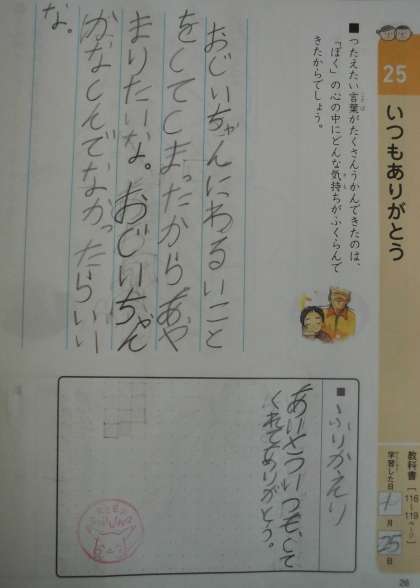 25
いつもありがとう
■つたえたい言葉がたくさんうかんできたのは、
「ぼく」の心の中にどんな気持ちがふくらんで
きたからでしょう。
おじいちゃんにわるいこと
をしてしまったからあや
まりたいな。おじいちゃん
かなしんでなかったらいい
な。
教科書 116〜119ページ
学習した日 1月25日
■ふりかえり
ありがとういつも、して
くれてありがとう。
26